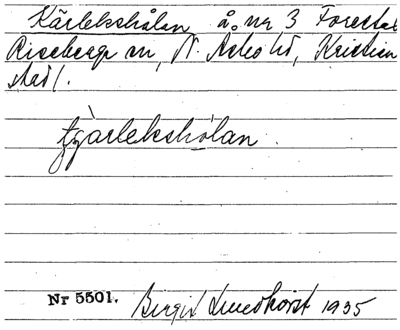 Kärlekshålan å nr 3 Forestad
Riseberga sn, N. Åsbo hd, Kristian
stad l.
tjàrlekshólan
Nr 5501. Birgit Lundkvist 1935